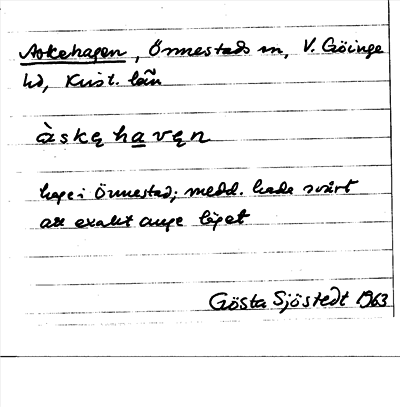 Askehagen, Önnestads sn, V. Göinge
hd, Krist. län
àskę havęn
hage i Önnestad; medd. hade svårt
att exakt ange läget
Gösta Sjöstedt 1963